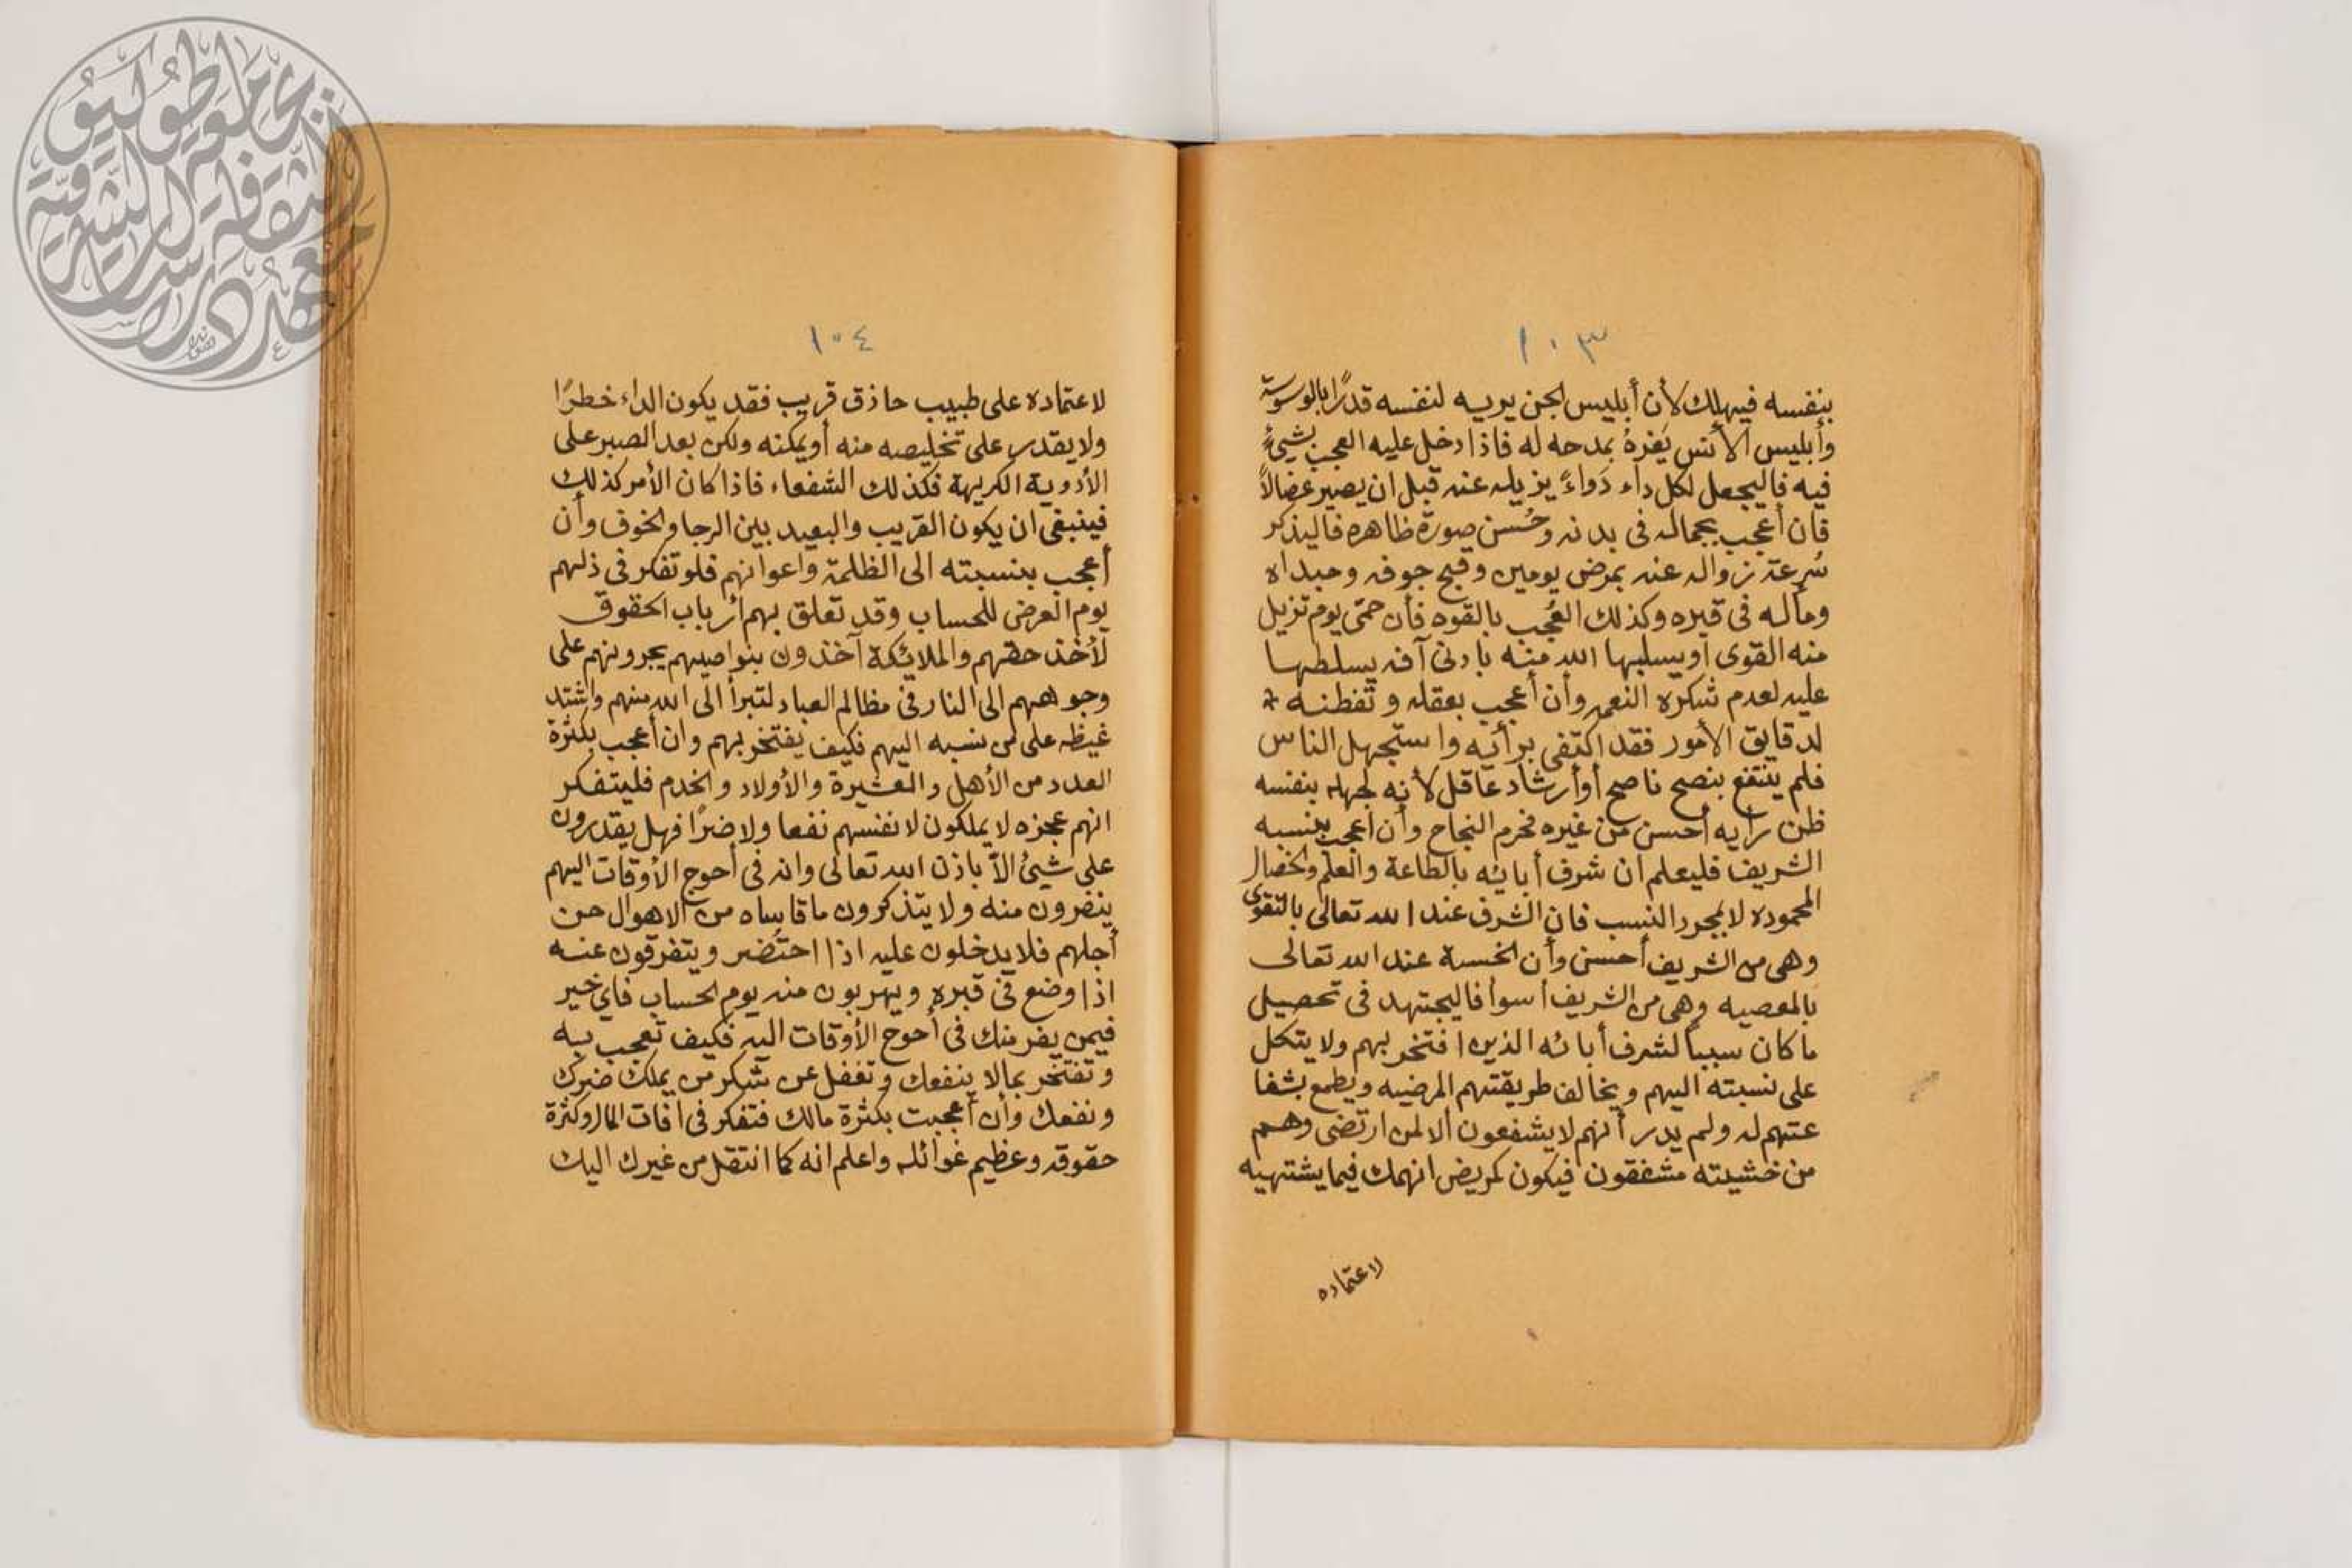 ١٠٣
بنفسه فيهلك لأن أبليس الجن يريه لنفسه قدرًا بالوسوسة
وأبليس الأنس يَغرهُ بمدحه له فاذا دخل عليه العجب بشيءٍ
فيه فاليجعل لكل داء دَواءً يزيله عنه قبل ان يصير عضالاً
فان أعجب بجماله فى بدنه وحُسن صورة ظاهره فاليذكر
سُرعة زواله عنه بمرض يومين وقبح جوفه ومبداه
ومآله فى قبره وكذلك العُجب بالقوه فأن حمّى يوم تزيل
منه القوى أو يسلبها الله منه بادنى آفه يسلطها
عليه لعدم شكره النعمه وأن أعجب بعقله وتفطنه
لدقايق الأمور فقد اكتفى برأيه واستجهل الناس
فلم ينتفع بنصح ناصح أو أرشاد عاقل لأنه لجهله بنفسه
ظن رأيه أحسن من غيره فحرم النجاح وأن أعجب بنسبه
الشريف فليعلم ان شرف أبائه بالطاعة والعلم والخصال
المحموده لا بمجرد النسب فان الشرف عند الله تعالى بالتقوى
وهى من الشريف أحسن وأن الخسة عند الله تعالى
بالمعصيه وهى من الشريف أسوأ فاليجتهد فى تحصيل
ما كان سبباً لشرف أبائه الذين افتخر بهم ولا يتكل
على نسبته اليهم ويخالف طريقتهم المرضيه ويطمع بشفا
عتهم له ولم يدر أنهم لا يشفعون ألا لمن ارتضى وهم
من خشيته مشفقون فيكون كمريض انهمك فيما يشتهيه
لاعتماده
١٠٤
لاعتماده على طبيب حاذق قريب فقد يكون الداء خطرًا
ولا يقدر على تخليصه منه أو يمكنه ولكن بعد الصبر على
الأدوية الكريهة فكذلك الشفعاء فاذا كان الأمر كذلك
فينبغى ان يكون القريب والبعيد بين الرجا والخوف وأن
أعجب بنسبته الى الظلمة واعوانهم فلو تفكر فى ذلهم
يوم العرض للحساب وقد تعلق بهم أرباب الحقوق
لأخذ حقهم والملائكة آخذون بنواصيهم يجرونهم على
وجوههم الى النار فى مظالم العباد لتبرأ الى الله منهم واشتد
غيظه على من نسبه اليهم فكيف يفتخر بهم وان أعجب بكثرة
العدد من الأهل والعشيرة والأولاد والخدم فليتفكر
انهم عجزه لا يملكون لانفسهم نفعا ولا ضرًا فهل يقدرون
على شيئ الاّ باذن الله تعالى وانه فى أحوج الأوقات اليهم
ينفرون منه ولا يتذكرون ما قاساه من الاهوال من
أجلهم فلا يدخلون عليه اذا احتُضر ويتفرقون عنه
اذا وضع فى قبره ويهربون منه يوم الحساب فاي خير
فيمن يفر منك فى أحوج الأوقات اليه فكيف تعجب به
وتفتخر بمالا ينفعك وتغفل عن شكر من يملك ضرك
ونفعك وأن أعجبت بكثرة مالك فتفكر فى افات المال وكثرة
حقوقه وعظيم غوائله واعلم انه كما انتقل من غيرك اليك